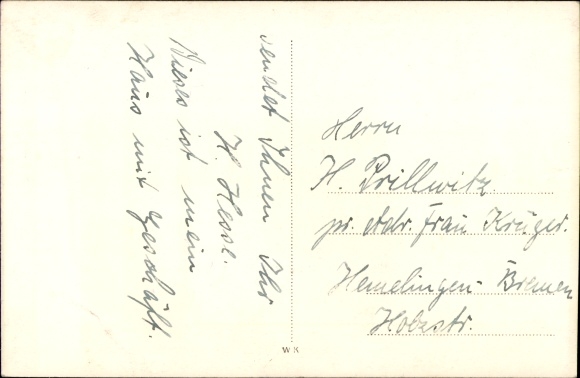 sendet Ihnen Ihr
H. Hesse.
Dieses ist mein
Haus mit Geschäft.
Herrn
H. Prillwitz
pr. Adr. Frau Krüger.
Hemelingen-Bremen
Holzstr.
WK